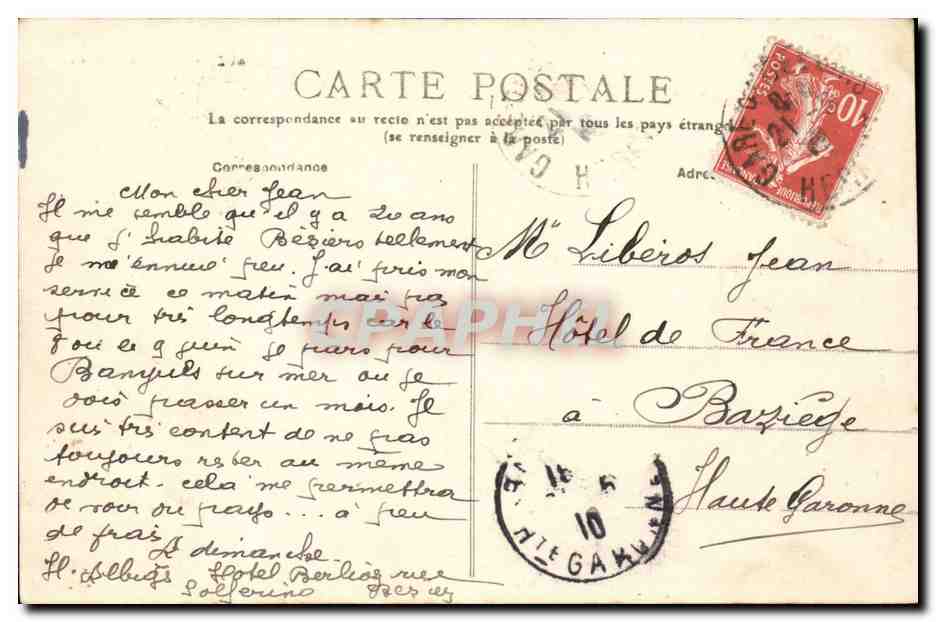 CARTE POSTALE
La correspondance au recto n'est pas acceptée par tous les pays étrang
(se renseigner à la poste)
Correspondance
Adre
Mon cher Jean
Il me semble qu'il y a 20 ans
que j'habite Béziers tellement
je m'ennuie peu. J'ai pris mon
service ce matin mais pas
pour très longtemps car le
8 ou le 9 juin je pars pour
Banyuls sur mer ou je
vais passer un mois. Je
suis très content de ne pas
toujours rester au même
endroit. cela me permettra
de voir du pays... à peu
de frais
A dimanche
H. Hotel Berlioz rue
Solferino Beziers
Mr Libéros Jean
Hôtel de France
à Baziège
Haute Garonne
10
POSTES
GARE
21
HER
GA
H
10
HTE GARONNE
CPAPHIL